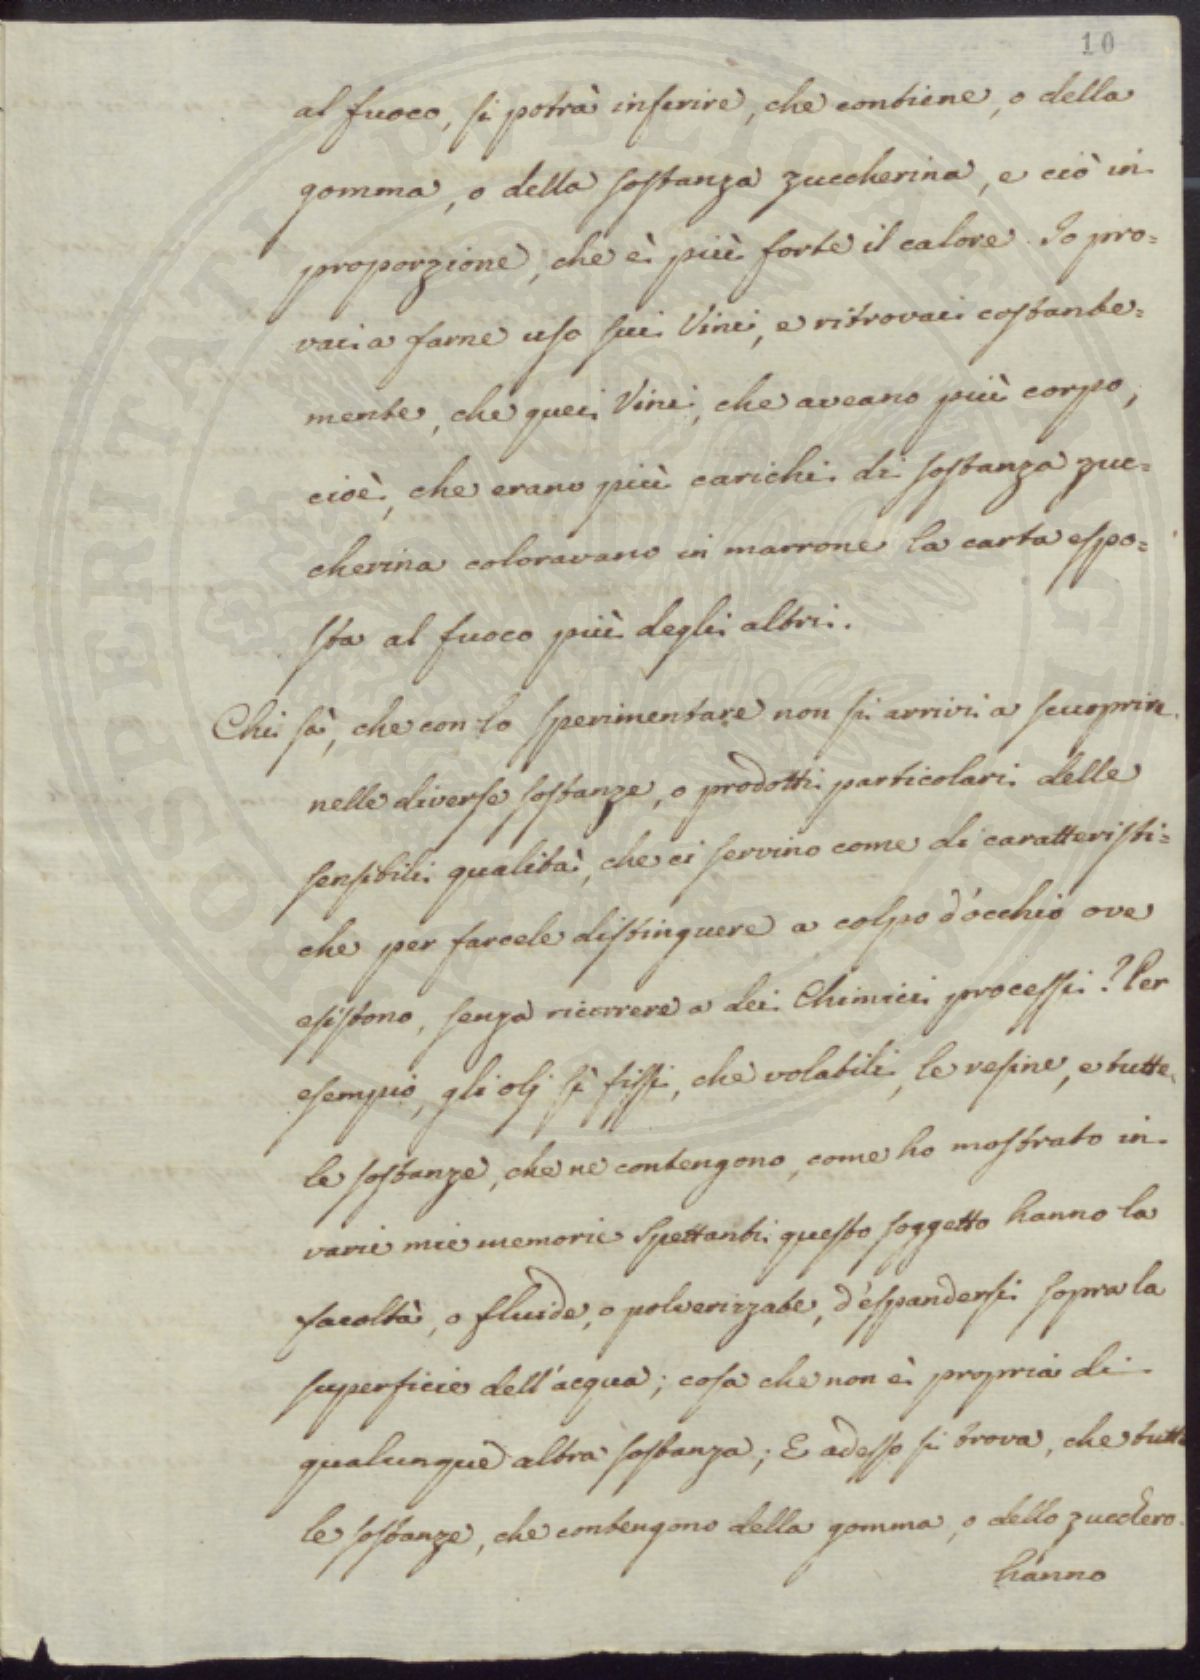 10
al fuoco, si potrà inferire, che contiene, o della
gomma, o della sostanza zuccherina, e ciò in
proporzione, che è più forte il calore. Io pro=
vai a farne uso sui Vini, e ritrovai costante=
mente, che quei Vini, che aveano più corpo,
cioè, che erano più carichi di sostanza zuc=
cherina coloravano in marrone la carta espo=
sta al fuoco più degli altri.
Chi sà, che con lo sperimentare non si arrivi a scuoprire
nelle diverse sostanze, o prodotti particolari delle
sensibili qualità, che ci servino come di caratteristi=
che per farcele distinguere a colpo d'occhio ove
esistono, senza ricorrere a dei Chimici processi? Per
esempio, gli olj sì fissi, che volatili, le resine, e tutte
le sostanze, che ne contengono, come ho mostrato in
varie mie memorie spettanti questo soggetto hanno la
facoltà, o fluide, o polverizzate, d'espandersi sopra la
superficie dell'acqua; cosa che non è propria di
qualunque altra sostanza; E adesso si trova, che tutte
le sostanze, che contengono della gomma, o dello zucchero
hanno
PROSPERITATI PUBLICAE AUGENDAE